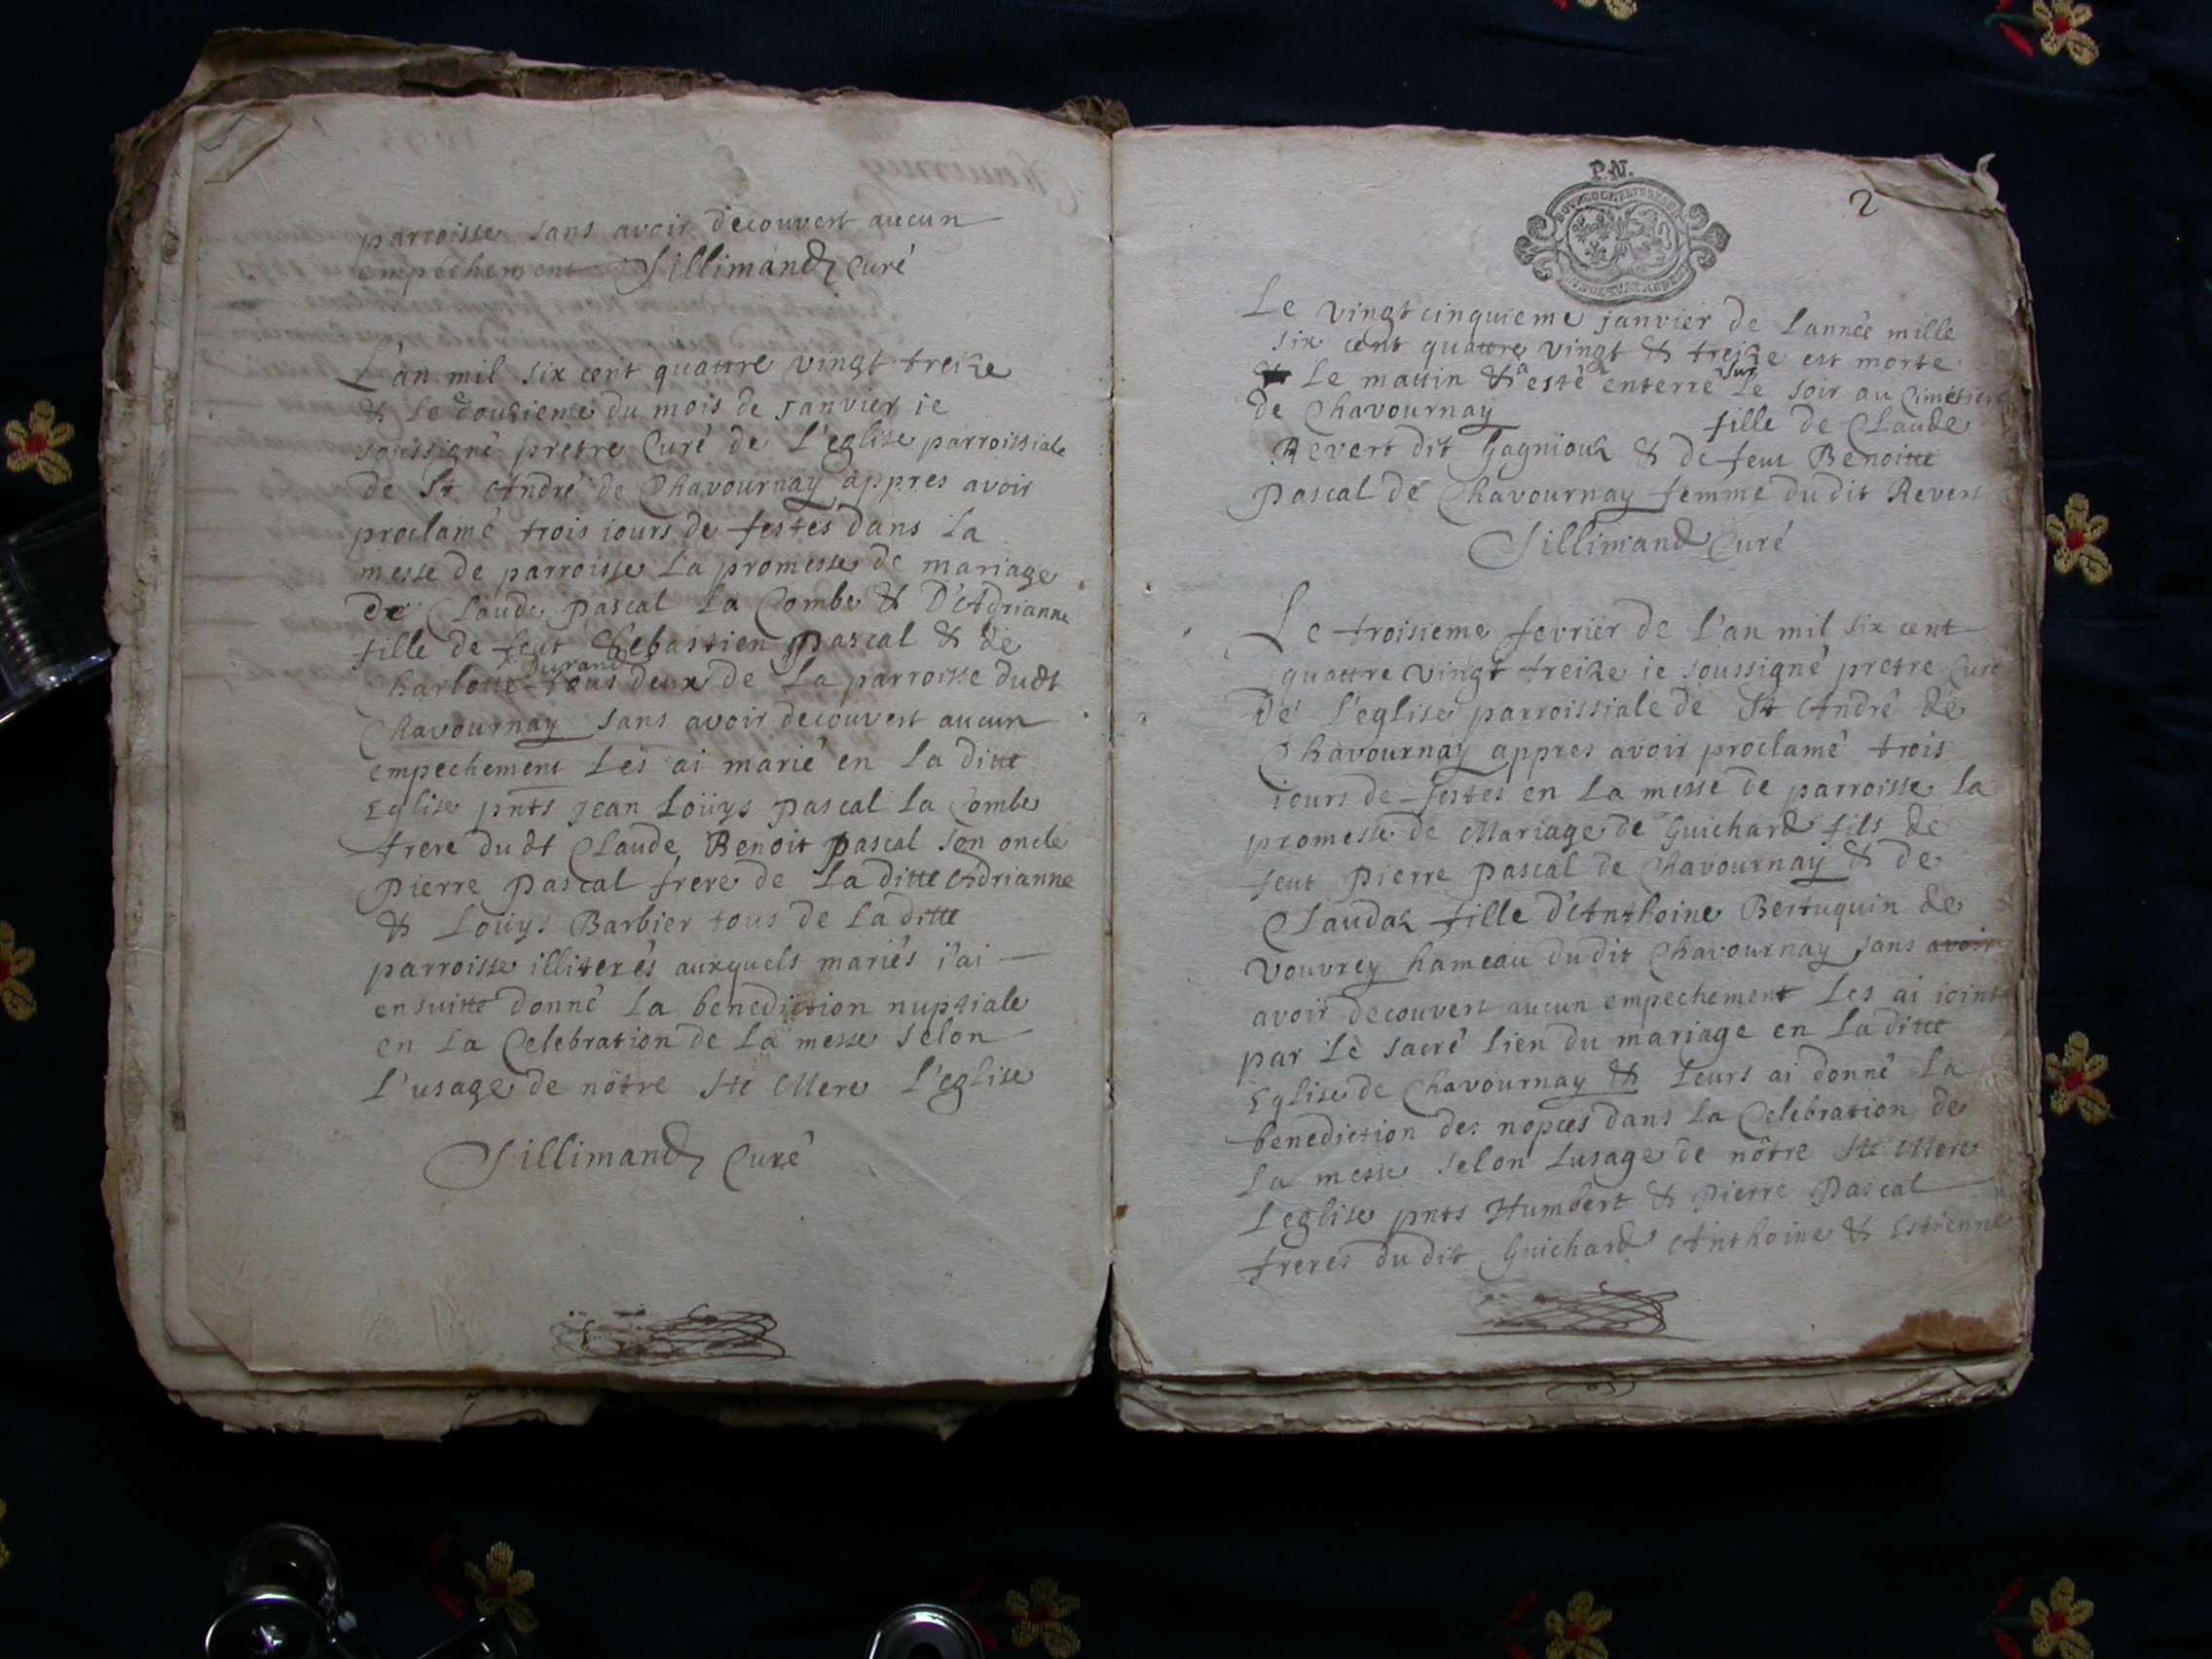 parroisse sans avoir decouvert aucun
empéchement Sillimand Curé
L'an mil six cent quattre vingt treize
& le douzieme du mois de janvier ie
soussigné pretre Curé de L'eglise parroissiale
de St André de Chavournay appres avoir
proclamé trois iours de festes dans la
messe de parroisse La promesse de mariage
de Claude pascal La Combe & D'Adrianne
fille de feut Sebastien pascal & de
Durand
Charlotte tous deux de La parroisse dudt
Chavournay sans avoir decouvert aucun
empechement Les ai marié en La ditte
Eglise pnts Jean Loüys pascal La Combe
frere dudt Claude, Benoit pascal son oncle
pierre pascal frere de La ditte Adrianne
& Loüys Barbier tous de La ditte
parroisse illiterés auxquels mariés i'ai
ensuitte donné La benediction nuptiale
en La Celebration de La messe selon
L'usage de nôtre Ste Mere L'eglise
Sillimand Curé
P.N.
2
Le vingt cinquieme janvier de Lannée mille
six cent quattre vingt & treize est morte
sur
Le mattin & a esté enterré Le soir au Cimetiere
de Chavournay fille de Claude
Revert dit Gagnioux & de feut Benoitte
pascal de Chavournay femme dudit Revert
Sillimand Curé
Le troisieme fevrier de L'an mil six cent
quattre vingt treize ie soussigné pretre Curé
de L'eglise parroissiale de St André de
Chavournay appres avoir proclamé trois
iours de festes en La messe de parroisse La
promesse de Mariage de Guichard fils de
feut pierre pascal de Chavournay & de
Claudaz fille d'Anthoine Bertuquin de
vouvrey hameau dudit Chavournay sans avoir
avoir decouvert aucun empechement Les ai ioint
par Le sacré Lien du mariage en La ditte
Eglise de Chavournay & Leurs ai donné La
benediction des nopces dans La Celebration de
La messe selon Lusage de nôtre Ste Mere
Leglise pnts Humbert & pierre pascal
freres dudit Guichard Anthoine & Estienne